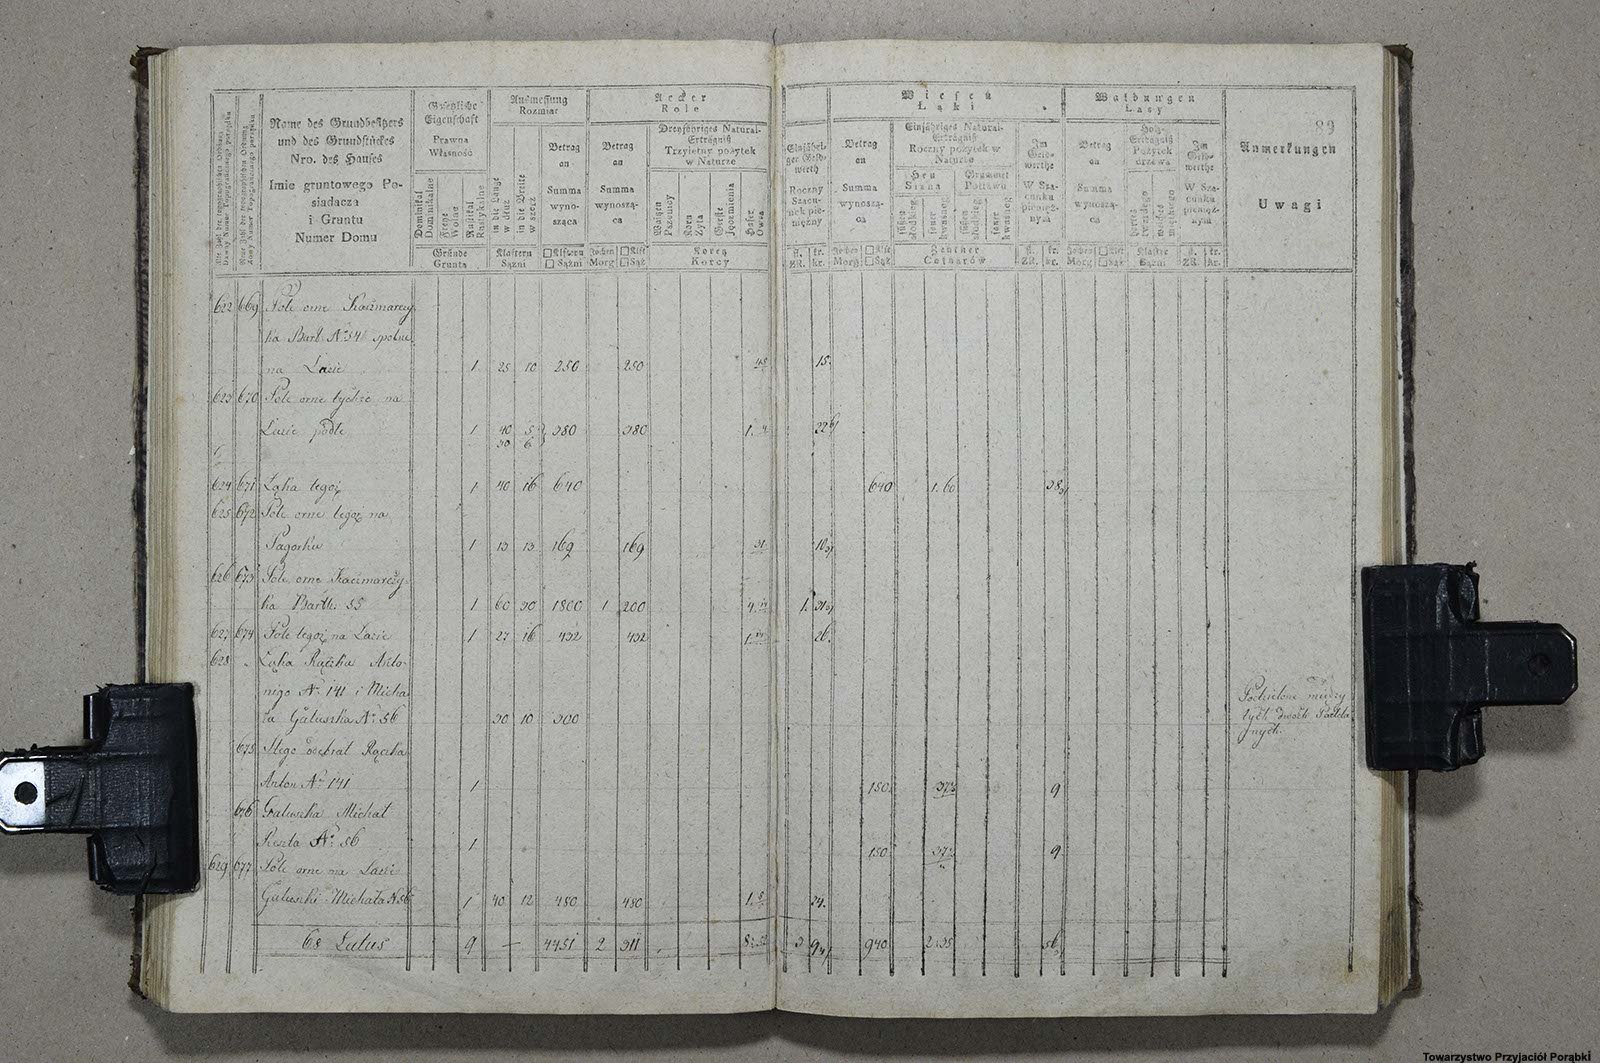 Name des Grundbesitzers
und des Grundstückes
Nro. des Hauses
Imie gruntowego Po-
siadacza
i Gruntu
Numer Domu
Gesetzliche
Eigenschaft
Prawna
Własność
Dominikal
Dominikalne
Freye
Wolne
Rustikal
Rustykalne
Gründe
Grunta
Ausmessung
Rozmiar
in die Länge
w dłuż
in die Breite
w szerz
Klaftern
Sążni
Betrag
an
Summa
wyno-
sząca
Klaftern
Sążni
Aecker
Role
Betrag
an
Summa
wynoszą-
ca
Jochen Klft
Morg Sąż
Dreyjähriges Natural-
Erträgniß
Trzyletny pożytek
w Naturze
Waitzen
Pszenicy
Korn
Żyta
Gerste
Jęczmienia
Hafer
Owsa
Koretz
Korcy
Einjähri-
ger Geld-
werth
Roczny
Szacu-
nek pie-
niężny
fl. kr.
ZR. kr.
Wiesen
Łąki
Betrag
an
Summa
wynoszą-
ca
Jochen Klft
Morg Sąż
Einjähriges Natural-
Erträgniß
Roczny pożytek w
Naturze
Heu
Siana
Grummet
Potrawu
Zentner
Cetnarów
Im
Geld-
werthe
W Sza-
cunku
pienięż-
nym
fl. kr.
ZR. kr.
Waldungen
Lasy
Betrag
an
Summa
wynoszą-
ca
Jochen Klft
Morg Sąż
Holz-
Erträgniß
Pożytek
drzewa
Klafter
Sążni
Im
Geld-
werthe
W Sza-
cunku
pienięż-
nym
fl. kr.
ZR. kr.
89
Anmerkungen
Uwagi
622 669 Pole orne Kaczmarczy
ka Bart. No 54 spolne
na Lasie 1 25 10 250 250 45 15
623 670 Pole orne tychże na
Lasie podle 1 40 5 380 380 1. 22
30 6
624 671 Łąka tegoż 1 40 16 640 640 1.60 38
625 672 Pole orne tegoż na
Pagorku 1 13 13 169 169 31 10
626 673 Pole orne Kaczmarczy
ka Barth. 55 1 60 30 1800 1 200 4. 1. 31
627 674 Pole tegoż na Lasie 1 27 16 432 432 1. 26
628 Łąka Rączka Anto-
niego No 141 i Micha
ła Gałuszka No 56 30 10 300
Podzielone między
tych dwóch
675 Z tego odebrał Rączka
Anton No 141 1 150 37 9
676 Gałuszka Michał
Reszta No 56 1 150 37 9
629 677 Pole orne na Lasie
Gałuszki Michała N 56 1 40 12 480 480 1. 24
68 Latus 9 — 4451 2 311 8. 3 9 940 2.35 56
Towarzystwo Przyjaciół Porąbki